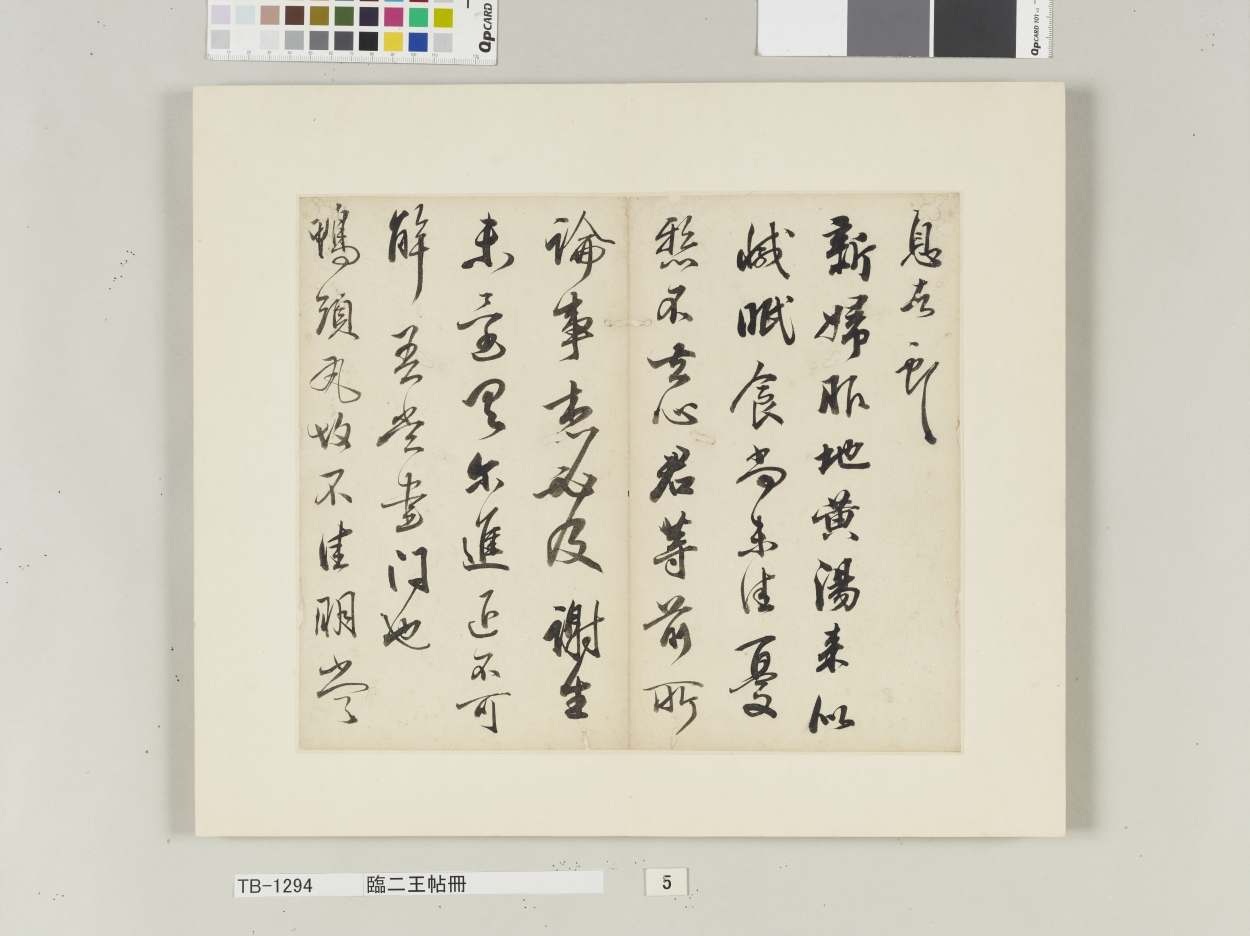 息
新婦服地黄湯来似
減眠食尚未佳憂
懸不去心君等前所
論事想必及謝生
未還何尔進退不可
解吾當書問也
鴨頭丸故不佳明當
QPCARD
QPCARD 101
TB-1294 臨二王帖冊
5